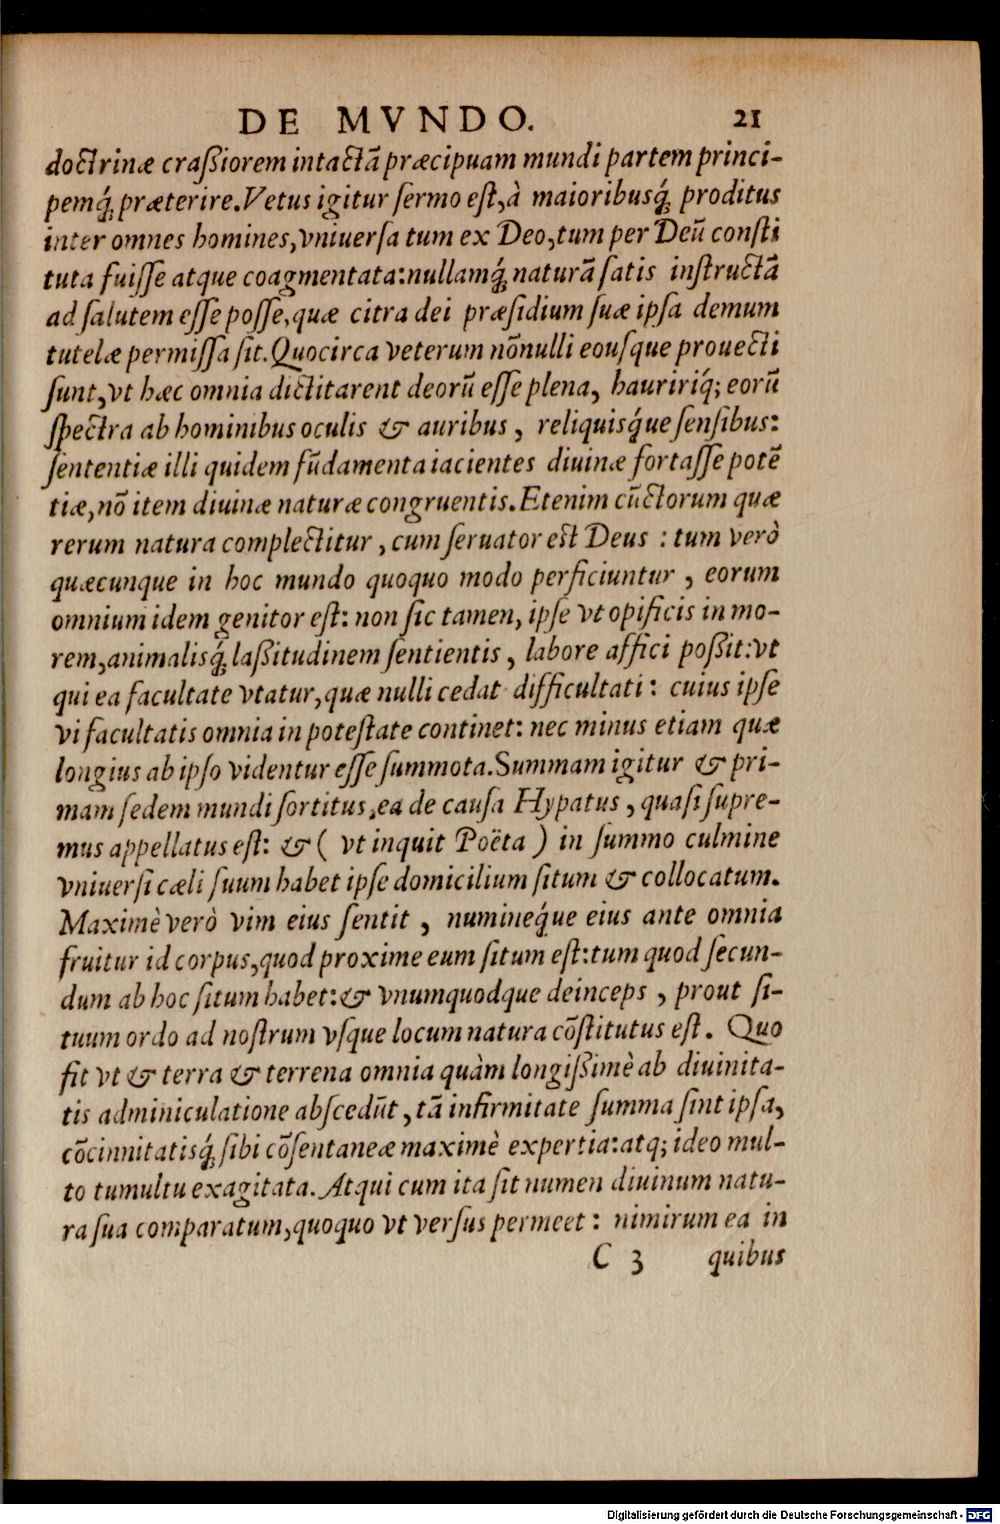 DE MVNDO. 21
doctrinæ craßiorem intactā præcipuam mundi partem princi-
pemq́; præterire. Vetus igitur sermo est, à maioribusq́; proditus
inter omnes homines, vniuersa tum ex Deo, tum per Deū consti
tuta fuisse atque coagmentata: nullamq́; naturā satis instructā
ad salutem esse posse, quæ citra dei præsidium suæ ipsa demum
tutelæ permissa sit. Quocirca veterum nōnulli eousque prouecti
sunt, vt hæc omnia dictitarent deorū esse plena, hauririq́; eorū
spectra ab hominibus oculis & auribus, reliquisq́ue sensibus:
sententiæ illi quidem fūdamenta iacientes diuinæ fortasse potē
tiæ, nō item diuinæ naturæ congruentis. Etenim cūctorum quæ
rerum natura complectitur, cum seruator est Deus : tum verò
quæcunque in hoc mundo quoquo modo perficiuntur, eorum
omnium idem genitor est: non sic tamen, ipse vt opificis in mo-
rem, animalisq́; laßitudinem sentientis, labore affici poßit: vt
qui ea facultate vtatur, quæ nulli cedat difficultati: cuius ipse
vi facultatis omnia in potestate continet: nec minus etiam quæ
longius ab ipso videntur esse summota. Summam igitur & pri-
mam sedem mundi sortitus, ea de causa Hypatus, quasi supre-
mus appellatus est: & ( vt inquit Poëta ) in summo culmine
vniuersi cæli suum habet ipse domicilium situm & collocatum.
Maximè verò vim eius sentit, numineq́ue eius ante omnia
fruitur id corpus, quod proxime eum situm est: tum quod secun-
dum ab hoc situm habet: & vnumquodque deinceps, prout si-
tuum ordo ad nostrum vsque locum natura cōstitutus est. Quo
fit vt & terra & terrena omnia quàm longißimè ab diuinita-
tis adminiculatione abscedūt, tā infirmitate summa sint ipsa,
cōcinnitatisq́; sibi cōsentaneæ maximè expertia: atq; ideo mul-
to tumultu exagitata. Atqui cum ita sit numen diuinum natu-
ra sua comparatum, quoquo vt versus permeet: nimirum ea in
C 3 quibus
Digitalisierung gefördert durch die Deutsche Forschungsgemeinschaft - DFG